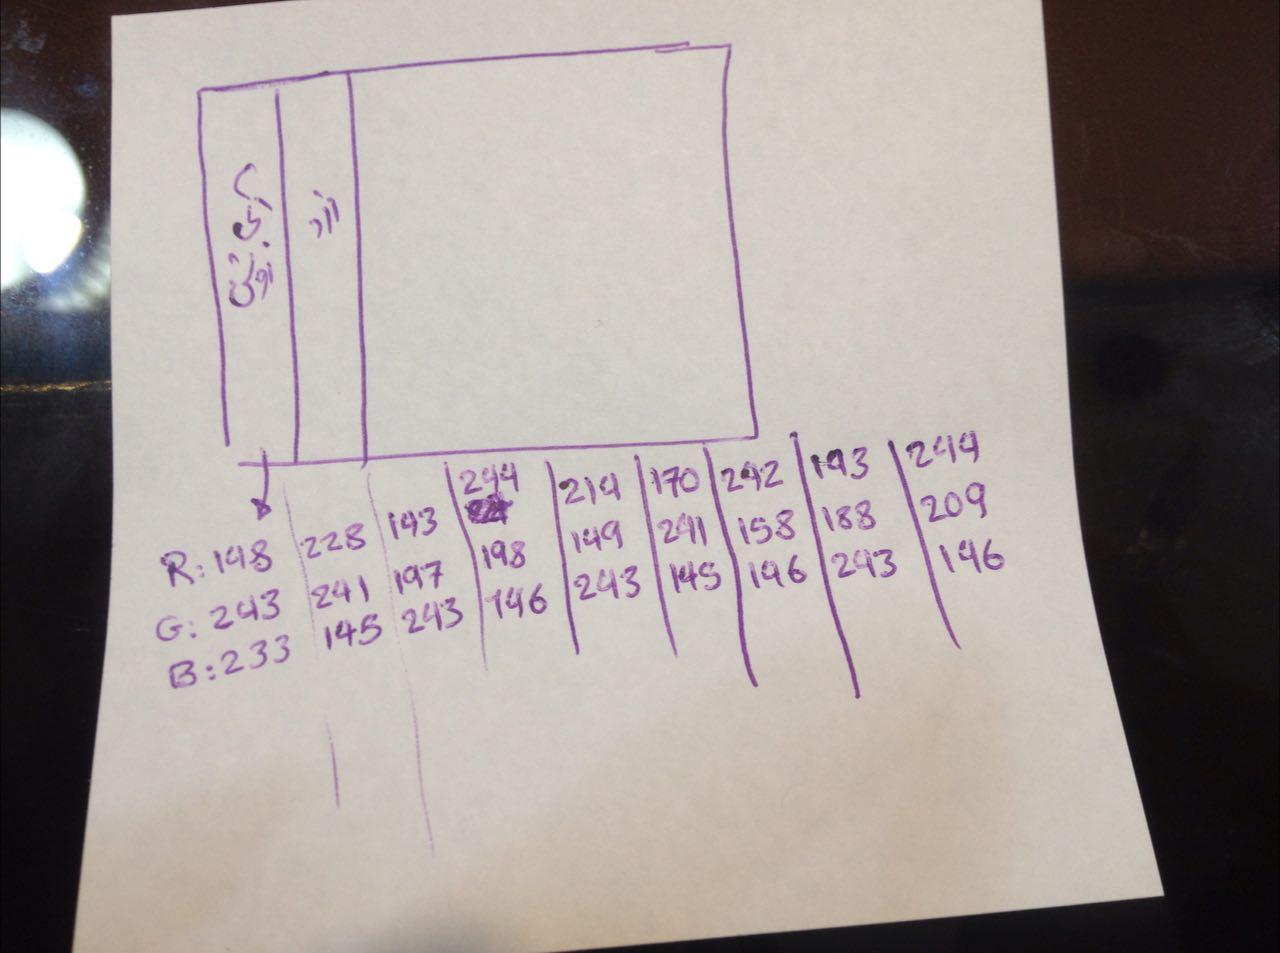 R: 148 228 143 244 214 170 242 143 244
G: 243 241 197 198 149 241 158 188 209
B: 233 145 243 146 243 145 146 243 146